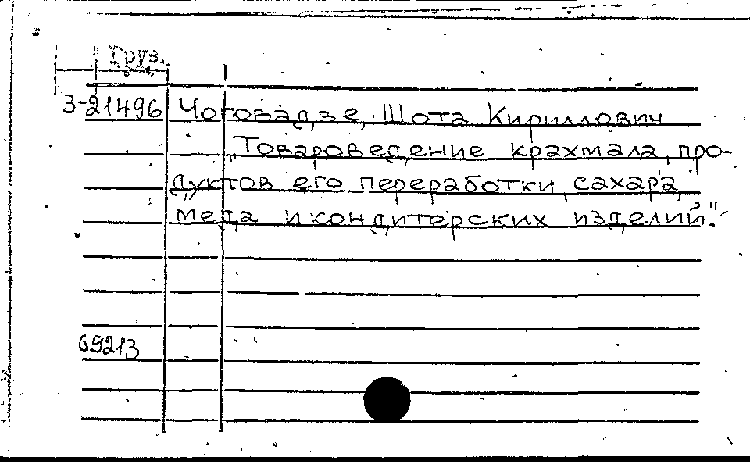 Груз.
3-21496 Чоговадзе, Шота Кириллович
„Товароведение крахмала, про-
дуктов его переработки, сахара,
меда и кондитерских изделий."
69213